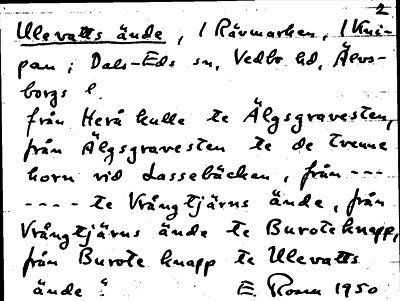 2
Ulevatts ände, i Rävmarken, i Kni-
pan i Dals-Eds sn, Vedbo hd, Älvs-
borgs l.
från Herå kulle te Älgsgravesten,
från Älgsgravesten te de trenne
horn vid Lassebäcken, från ---
---- te Vrångtjärns ände, från
Vrångtjärns ände te Buroteknapp,
från Burote knapp te Ulevatts
ände."
E. Rosen 1950